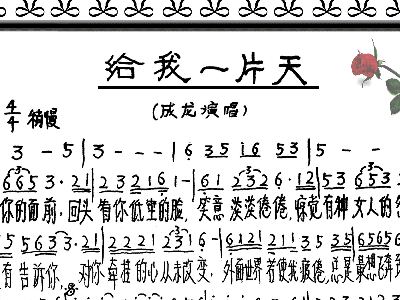 给我一片天
(成龙演唱)
4/4 稍慢
3 - 5 | 3 - - - | 6 5 1 6 5 3 | 5 - -
6 6 5 3 · 2 1 | 2 3 2 1 6 1 - | 6 1 2 3 2 6 · 1 2 | 5 3 6 5 3
你的面前.回头 看你低垂的脸, 笑意 淡淡倦倦, 惊觉有种 女人的
5 5 6 3 3 · 2 1 | 2 2 2 1 2 3 1 6 · | 6 1 2 1 2 1 1 | 5 1 5 5 | 6 5 6 5 6
有告诉你, 对你 牵挂的心从未改变. 外面世界 若使我疲倦, 总是 最想飞奔